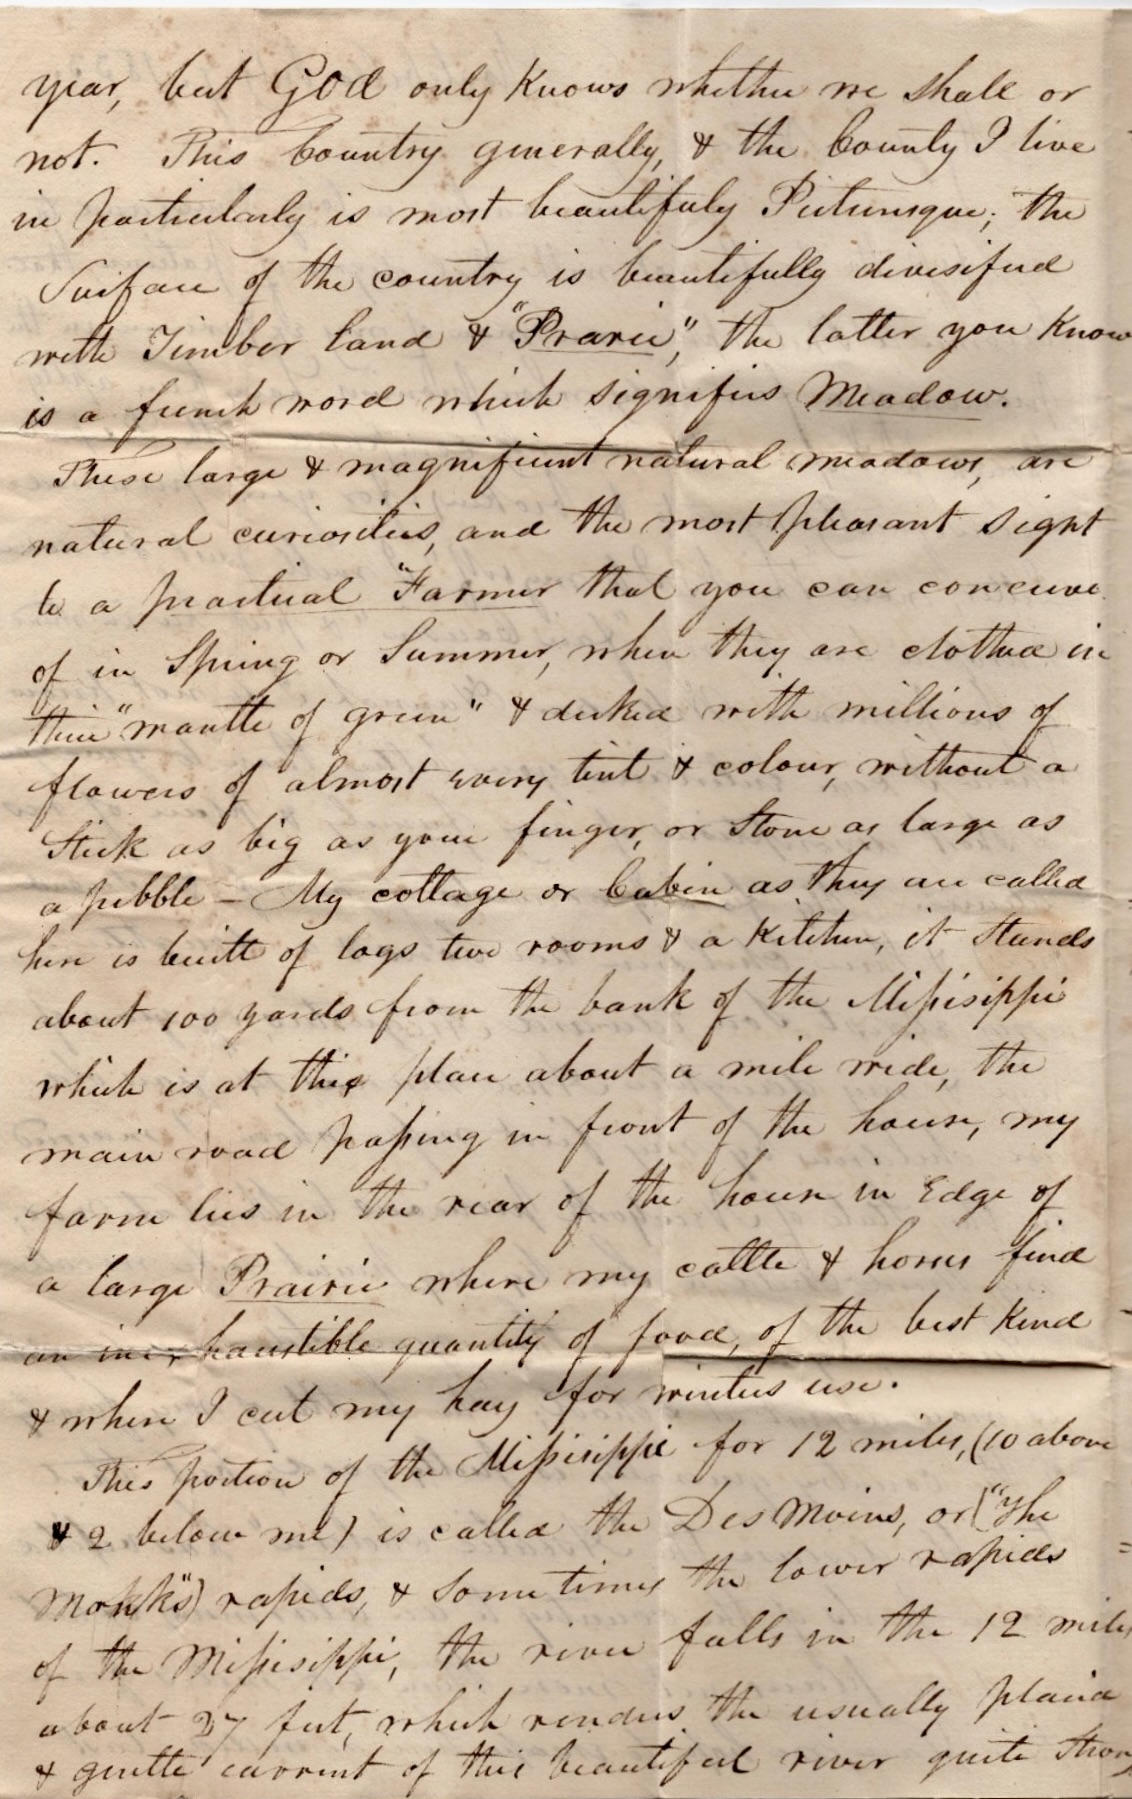 year, but God only Knows whether we shall or
not. This Country generally, & the County I live
in particularly is most beautifuly Picturesque; the
Surface of the country is beautifully diversified
with Timber land & "Prarie", the latter you Know
is a french word which signifies Meadow.
These large & magnificent natural meadows, are
natural curiosities, and the most pleasant sight
to a practical "Farmer that you can conceive
of in Spring or Summer, when they are clothed in
their "mantle of green" & decked with millions of
flowers of almost every tint & colour, without a
Stick as big as your finger, or Stone as large as
a pebble – My cottage or Cabin as they are called
here is built of logs two rooms & a Kitchen, it Stands
about 100 yards from the bank of the Missisippi
which is at this place about a mile wide, the
main road passing in front of the house, my
farm lies in the rear of the house in Edge of
a large Prairie where my cattle & horses find
an inexhaustible quantity of food, of the best Kind
& where I cut my hay for winters use.
This portion of the Missisippi for 12 miles, (10 above
& 2 below me) is called the Des Moins, or ("The
Monk's") rapids, & Sometimes the lower rapids
of the Missisippi, the river falls in the 12 miles
about 27 feet, which renders the usually placid
& gentle current of this beautiful river quite Strong